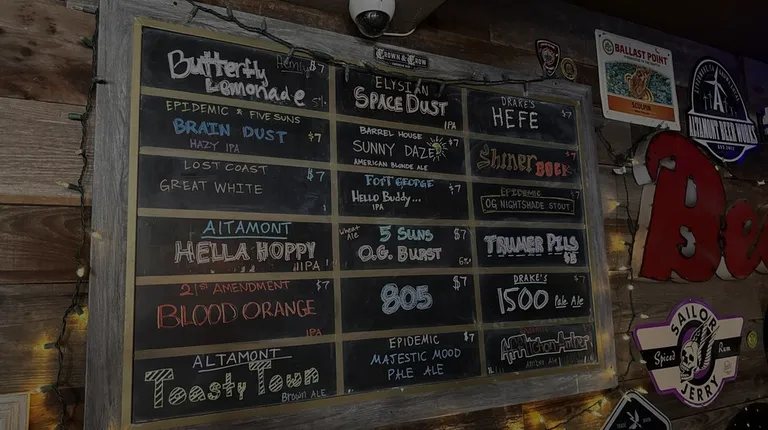 CROWN & CROW
Butterfly
Lemonade
$7
5%
EPIDEMIC x FIVE SUNS
BRAIN DUST
$7
HAZY IPA
LOST COAST
$7
GREAT WHITE
ALTAMONT
HELLA HOPPY
IIPA
21st AMENDMENT
$7
BLOOD ORANGE
IPA
ALTAMONT
Toasty Town
Brown ALE
ELYSIAN
SPACE DUST
IPA
BARREL HOUSE
$7
SUNNY DAZE
AMERICAN BLONDE ALE
FORT GEORGE
$7
Hello Buddy...
IPA
Wheat Ale
5 SUNS
$7
O.G. BURST
805
$7
EPIDEMIC
$7
MAJESTIC MOOD
PALE ALE
DRAKE'S
$7
HEFE
Shiner BOCK
$7
EPIDEMIC
$7
OG NIGHTSHADE STOUT
TRUMER PILS
$8
DRAKE'S
$7
1500 Pale Ale
BALLAST POINT
SCULPIN
ALTAMONT BEER WORKS
Bee
SAILOR
Spiced Rum
JERRY